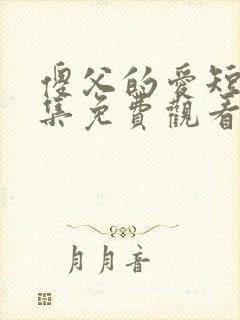 傻父的爱短
集免費觀看
月月音